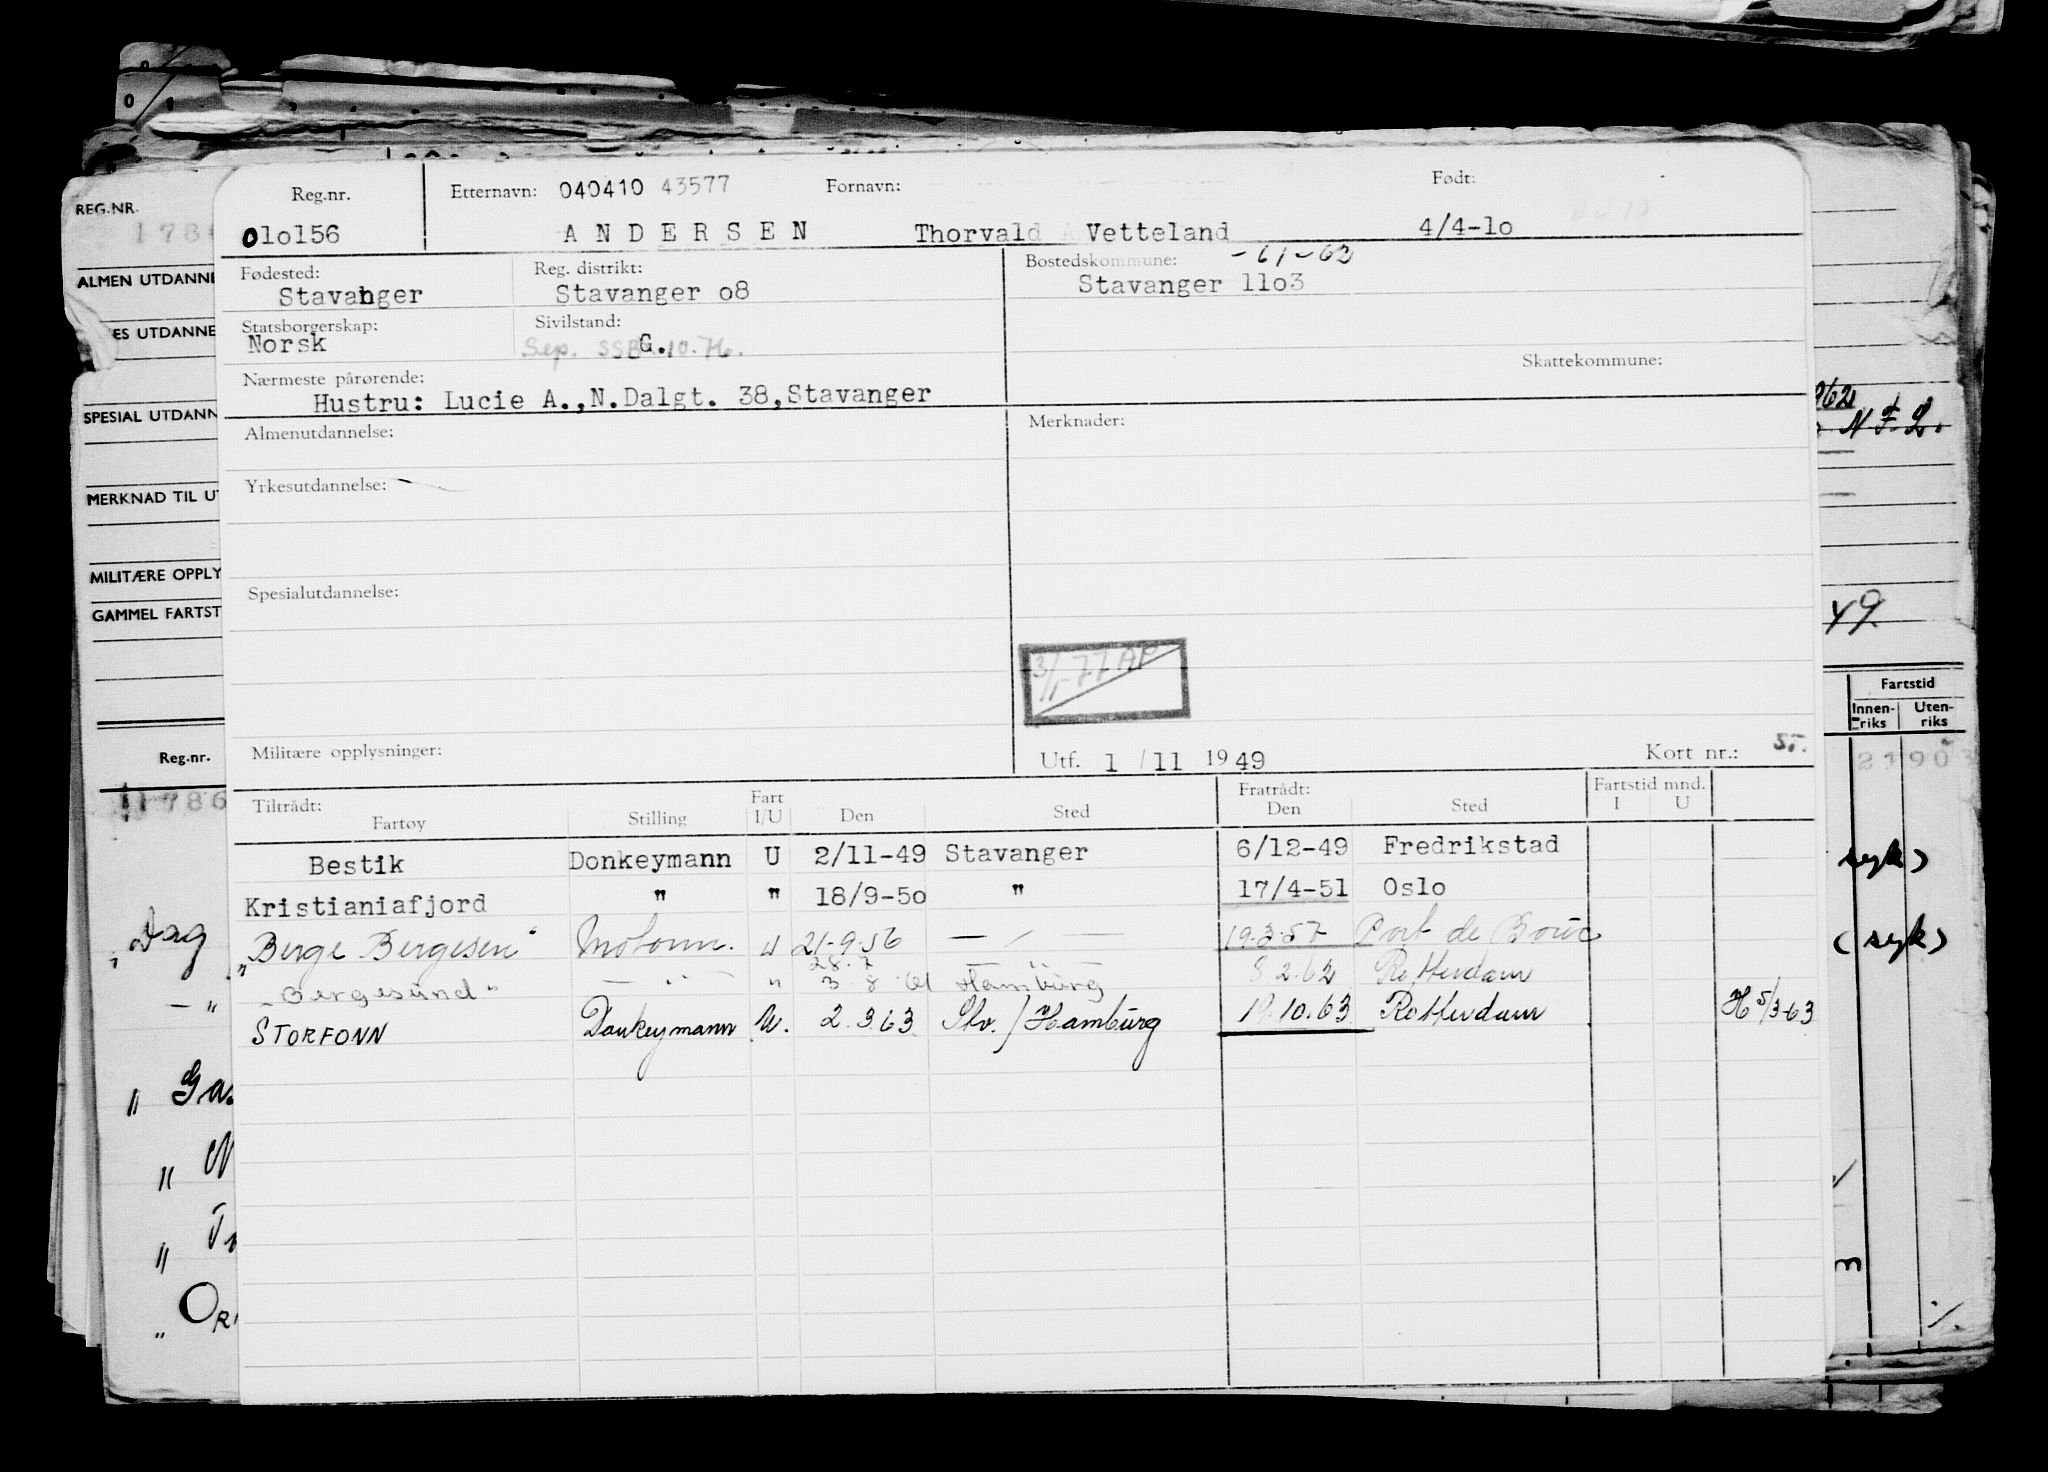 REG.NR.
ALMEN UTDANNE
ES UTDANNE
SPESIAL UTDANN
MERKNAD TIL UT
MILITÆRE OPPLY
GAMMEL FARTST
Reg.nr.
Reg.nr. Etternavn: 040410 43577 Fornavn: Født:
olol56 ANDERSEN Thorvald Vetteland 4/4-lo
Fødested: Reg. distrikt: Bostedskommune: -61-62
Stavanger Stavanger o8 Stavanger llo3
Statsborgerskap: Sivilstand:
Norsk Sep. SSB G.10.76. Skattekommune:
Nærmeste pårørende:
Hustru: Lucie A.,N.Dalgt. 38,Stavanger
Almenutdannelse: Merknader:
Yrkesutdannelse:
Spesialutdannelse:
3/1-77 AP
Militære opplysninger: Utf. 1 /11 1949 Kort nr.: 5.
Tiltrådt: Fart Fratrådt: Fartstid mnd.
Fartøy Stilling I/U Den Sted Den Sted I U
Bestik Donkeymann U 2/11-49 Stavanger 6/12-49 Fredrikstad
Kristianiafjord " " 18/9-5o " 17/4-51 Oslo
"Berge Bergesen" Motorm. u 21-9.56 — / — 19.3.57 Port de Bouc
"Bergesund" — " — " 28.7 3.8.61 Hamburg 8.2.62 Rotterdam
STORFONN Donkeymann U. 2.3.63 Stv./Hamburg 19.10.63 Rotterdam H 5/3-63
962
N F 2.
49
Fartstid
Innenriks Utenriks
21903
syk)
(syk)
"Dag
— "
" Gas
" N
"
" OR